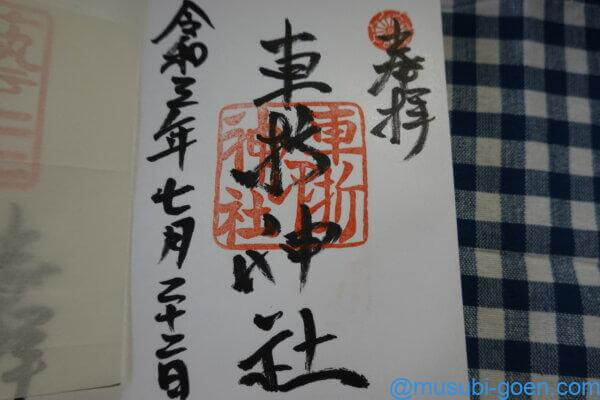 奉拝
車折神社
車折
神社
令和三年七月二十二日
@musubi-goen.com